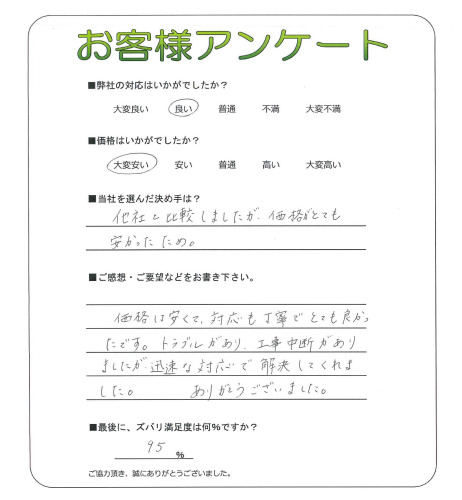 お客様アンケート
■弊社の対応はいかがでしたか？
大変良い 良い 普通 不満 大変不満
■価格はいかがでしたか？
大変安い 安い 普通 高い 大変高い
■当社を選んだ決め手は？
他社と比較しましたが、価格がとても
安かったため。
■ご感想・ご要望などをお書き下さい。
価格は安くて、対応も丁寧でとても良かっ
たです。トラブルがあり、工事中断があり
ましたが迅速な対応で解決してくれま
した。 ありがとうございました。
■最後に、ズバリ満足度は何%ですか？
95 %
ご協力頂き、誠にありがとうございました。